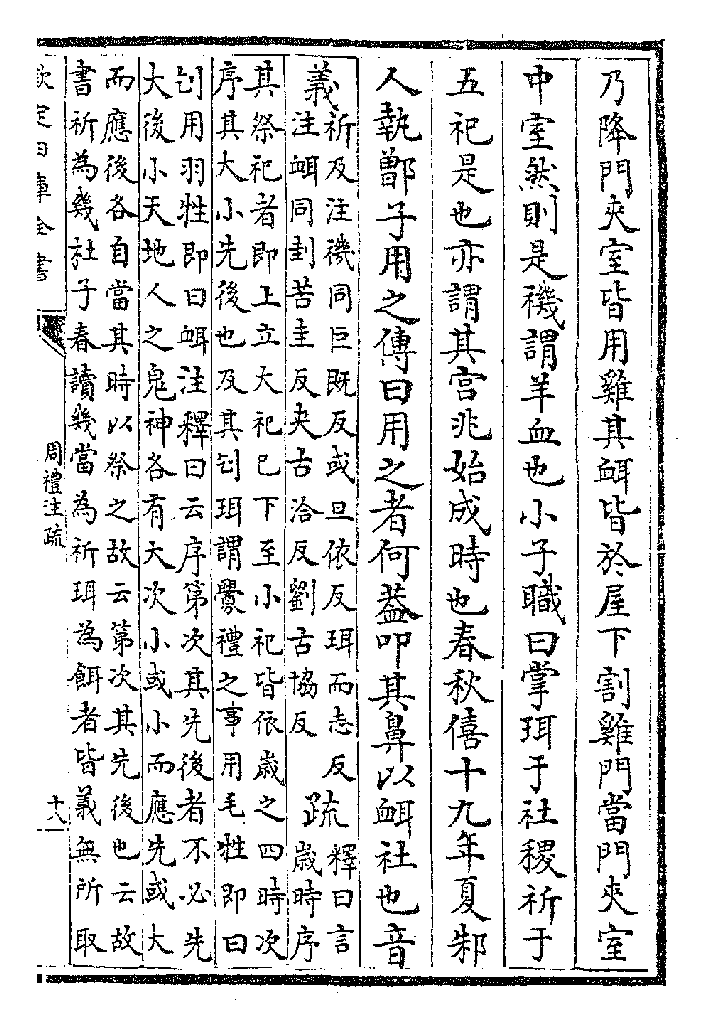 乃降門夾室皆用雞其衈皆於屋下割雞門當門夾室
中室然則是禨謂羊血也小子職曰掌珥于社稷祈于
五祀是也亦謂其宫兆始成時也春秋僖十九年夏邾
人執鄫子用之傳曰用之者何葢叩其鼻以衈社也音
義
祈及注禨同巨既反或旦依反珥而志反
注衈同刲苦圭反夾古洽反劉古協反
疏
釋曰言
歳時序
其祭祀者即上立大祀已下至小祀皆依歳之四時次
序其大小先後也及其刉珥謂釁禮之事用毛牲即曰
刉用羽牲即曰衈注釋曰云序第次其先後者不必先
大後小天地人之鬼神各有大次小或小而應先或大
而應後各自當其時以祭之故云第次其先後也云故
書祈為幾杜子春讀幾當為祈珥為餌者皆義無所取
欽定四庫全書
周禮注疏
十八